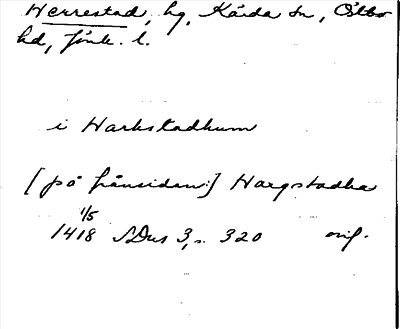 Herrestad, hg, Kärda sn, Östbo
hd, Jönk. l.
i Harhstadhum
[på frånsidan:] Hargstadha
1/5
1418 SDns 3, s. 320 orig.